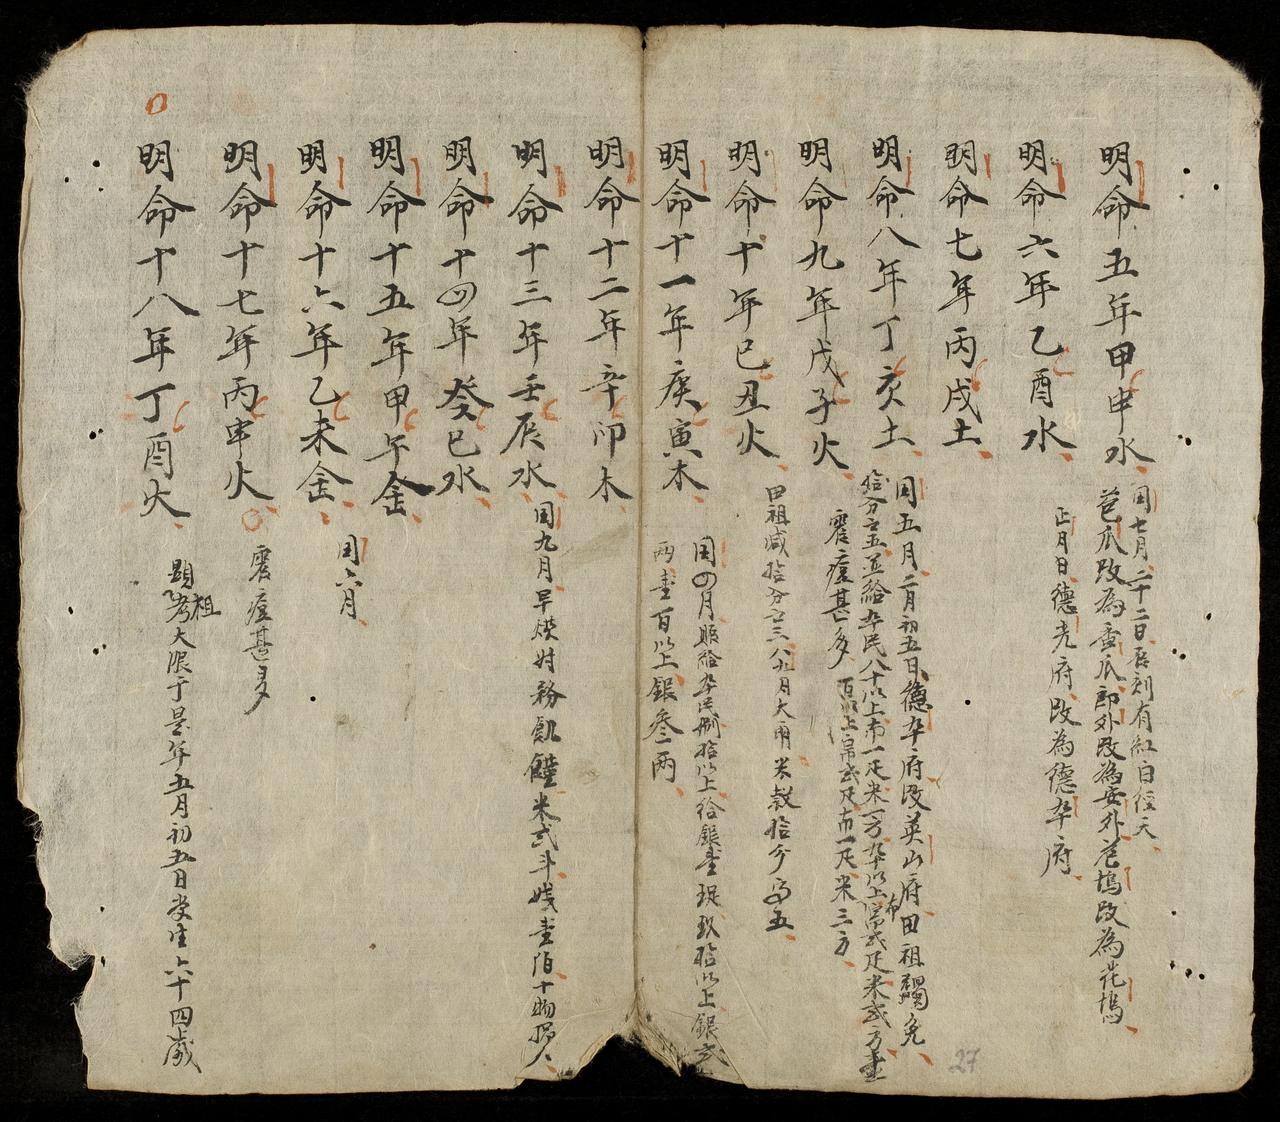 明命五年甲申水
因七月二十二日辰刻有紅白徑天
芭瓜改為香瓜郎外改為安外芭塢改為花塢
明命六年乙酉水
正月日德光府改為德夲府
明命七年丙戌土
明命八年丁亥土
因五月二月初五日德夲府改英山府田祖蠲免
拾分之五並給夲民八十以上布一疋米一方夲以上帛布弍疋米弍方壹
百以上帛弍疋布一疋米三方
明命九年戊子火
霍瘟甚多
明命十年巳丑火
田祖减拾分之三八九月大雨米穀拾分為五
明命十一年庚寅木
因四月賜給夲民捌拾以上給銀壹 玖拾以上銀弍
两壹百以上銀叄两
明命十二年辛卯木
明命十三年壬辰水
因九月旱 飢饉米弍斗 壹陌十物 人
明命十四年癸巳水
明命十五年甲午金
明命十六年乙未金
因六月
明命十七年丙申火
霍瘟甚多
明命十八年丁酉火
顕祖考大限于是年五月初五日 生六十四歲
27